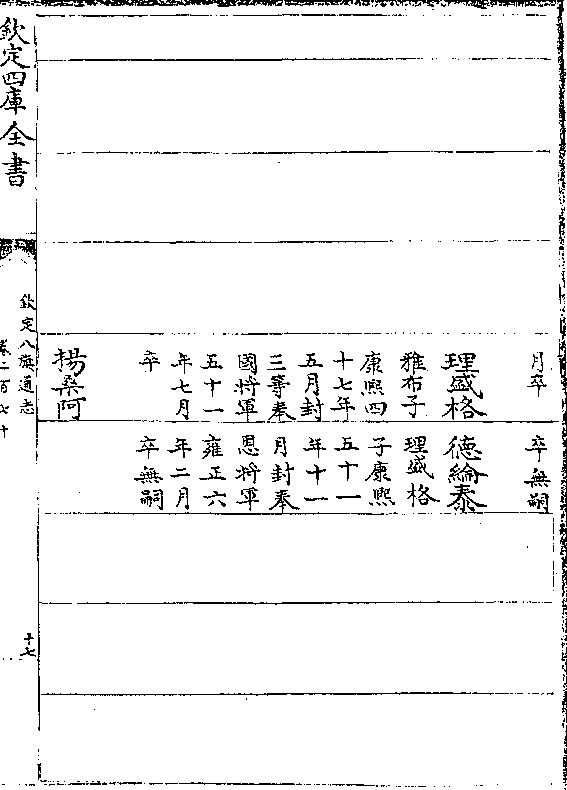 月卒
理盛格
雅布子
康熙四
十七年
五月封
三等奉
國將軍
五十一
年七月
卒
揚桑阿
卒無嗣
德綸泰
理盛格
子康熙
五十一
年十一
月封奉
恩將軍
雍正六
年二月
卒無嗣
欽定四庫全書
欽定八旗通志
卷二百七十
十七